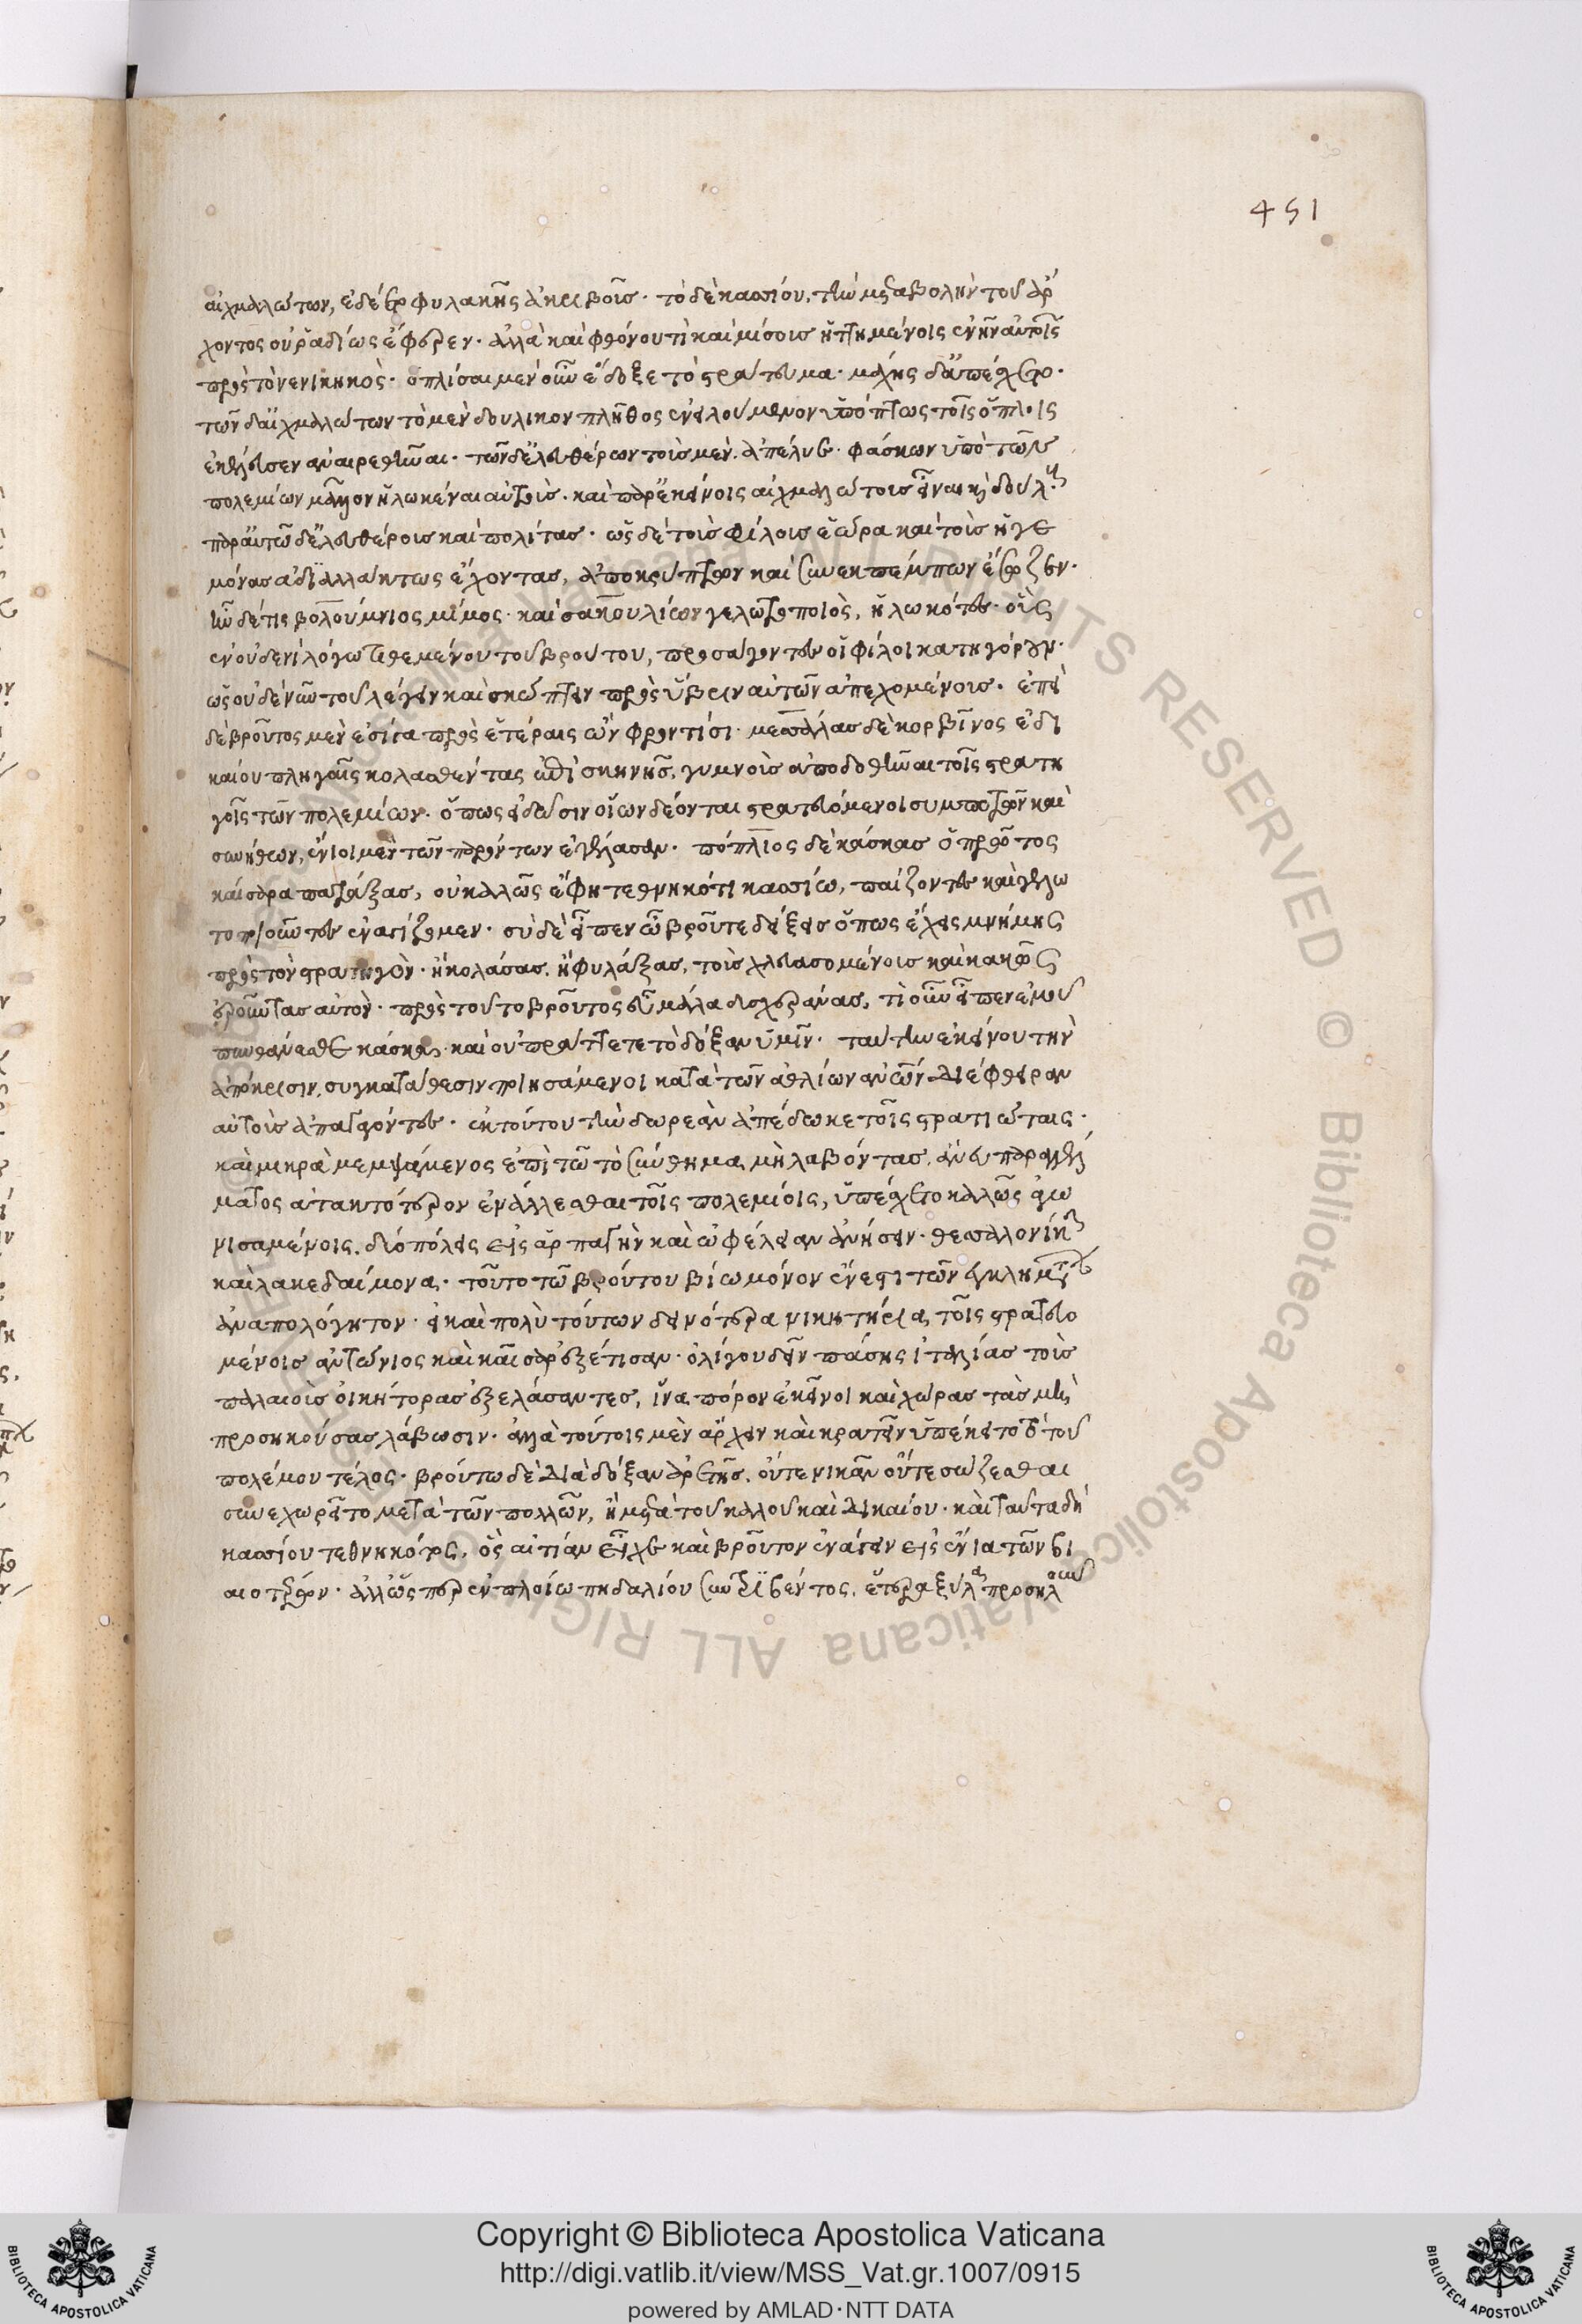 451
αἰχμαλώτων, ἐδεῖτο φυλακῆς ἀκριβοῦς. τὸ δὲ κασσίου, τὴν μεταβολὴν τοῦ ἄρ
χοντος οὐ ῥᾳδίως ἔφερεν. ἀλλὰ καὶ φθόνου τί καὶ μίσους ἡττημένοις ἐνῆν αὐτοῖς
πρὸς τὸ νενικηκὸς. ὁπλίσαι μὲν οὖν ἔδοξε τὸ στράτευμα. μάχης δ' ἀπείχετο.
τῶν δ' αἰχμαλώτων τὸ μὲν δουλικὸν πλῆθος ἐνειλούμενον ὑπόπτως τοῖς ὅπλοις
ἐκέλευσεν ἀναιρεθῆναι. τῶν δ' ἐλευθέρων τοὺς μὲν ἀπέλυε. φάσκων ὑπὸ τῶν
πολεμίων μᾶλλον ἡλωκέναι αὐτοὺς. καὶ παρ' ἐκείνοις αἰχμαλώτους εἶναι καὶ δούλους
παρ' αὑτῶ δ' ἐλευθέρους καὶ πολίτας. ὡς δὲ τοὺς φίλους ἑώρα καὶ τοὺς ἡγε
μόνας ἀδιαλλάκτως ἔχοντας, ἀποκρύπτων καὶ συνεκπέμπων ἔσωζεν.
ἦν δέ τις βολούμνιος μῖμος. καὶ σακουλίων γελωτοποιὸς, ἡλωκότες. οὓς
ἐν οὐδενὶ λόγω τιθεμένου τοῦ βρούτου, προσάγοντες οἱ φίλοι κατηγόρουν.
ὡς οὐδὲ νῦν τοῦ λέγειν καὶ σκώπτειν πρὸς ὕβριν αὐτῶν ἀπεχομένους. ἐπεὶ
δὲ βροῦτος μὲν ἐσίγα πρὸς ἑτέραις ὢν φροντίσι. μεσσάλας δὲ κορβῖνος ἐδι
καίου πληγαῖς κολασθέντας ἐπὶ σκηνῆς, γυμνοὺς ἀποδοθῆναι τοῖς στρατη
γοῖς τῶν πολεμίων. ὅπως εἰδῶσιν οἵων δέονται στρατευόμενοι συμποτῶν καὶ
συνήθων, ἔνιοι μὲν τῶν παρόντων ἐγέλασαν. πόπλιος δὲ κάσκας ὁ πρῶτος
καίσαρα πατάξας, οὐ καλῶς ἔφη τεθνηκότι κασσίω, παίζοντες καὶ γελω
τοποιοῦντες ἐναγίζομεν. σὺ δὲ εἶπεν ὦ βροῦτε δείξεις ὅπως ἔχεις μνήμης
πρὸς τὸν στρατηγὸν. ἢ κολάσας, ἢ φυλάξας, τοὺς χλευασομένους καὶ κακῶς
ἐροῦντας αὐτὸν. πρὸς τοῦτο βροῦτος εὖ μάλα δυσχεράνας, τί οὖν εἶπεν ἐμοῦ
πυνθάνεσθε κάσκα, καὶ οὐ πράττετε τὸ δόξαν ὑμῖν. ταύτην ἐκείνου τὴν
ἀπόκρισιν, συγκατάθεσιν ποιησάμενοι κατὰ τῶν ἀθλίων ἀνδρῶν διέφθειραν
αὐτοὺς ἀπαγαγόντες. ἐκ τούτου τὴν δωρεὰν ἀπέδωκε τοῖς στρατιώταις.
καὶ μικρὰ μεμψάμενος ἐπὶ τῶ τὸ σύνθημα μὴ λαβόντας, ἄνευ παραγγέλ
ματος ἀτακτότερον ἐνάλλεσθαι τοῖς πολεμίοις, ὑπέσχετο καλῶς ἀγω
νισαμένοις, δύο πόλεις εἰς ἁρπαγὴν καὶ ὠφέλειαν ἀνήσειν. θεσσαλονίκην
καὶ λακεδαίμονα. τοῦτο τῶ βρούτου βίω μόνον ἔνεστι τῶν ἐγκλημάτων
ἀναπολόγητον. εἰ καὶ πολὺ τούτων δεινότερα νικητήρια τοῖς στρατευο
μένοις ἀντώνιος καὶ καῖσαρ ἐξέτισαν. ὀλίγου δεῖν πάσης ἰταλίας τοὺς
παλαιοὺς οἰκήτορας ἐξελάσαντες, ἵνα πόρον ἐκεῖνοι καὶ χώρας τὰς μὴ
προσηκούσας λάβωσιν. ἀλλὰ τούτοις μὲν ἄρχειν καὶ κρατεῖν ὑπέκειτο τοῦ
πολέμου τέλος. βρούτω δὲ διὰ δόξαν ἀρετῆς, οὔτε νικᾶν οὔτε σώζεσθαι
συνεχωρεῖτο μετὰ τῶν πολλῶν, ἢ μετὰ τοῦ καλοῦ καὶ δικαίου. καὶ ταῦτα δὴ
κασσίου τεθνηκότος, ὃς αἰτίαν εἶχε καὶ βροῦτον ἐνάγειν εἰς ἔνια τῶν βι
αιοτέρων. ἀλλ' ὥσπερ ἐν πλοίω πηδαλίου συντριβέντος, ἕτερα ξύλα προσηλοῦν
Copyright © Biblioteca Apostolica Vaticana
http://digi.vatlib.it/view/MSS_Vat.gr.1007/0915
powered by AMLAD·NTT DATA